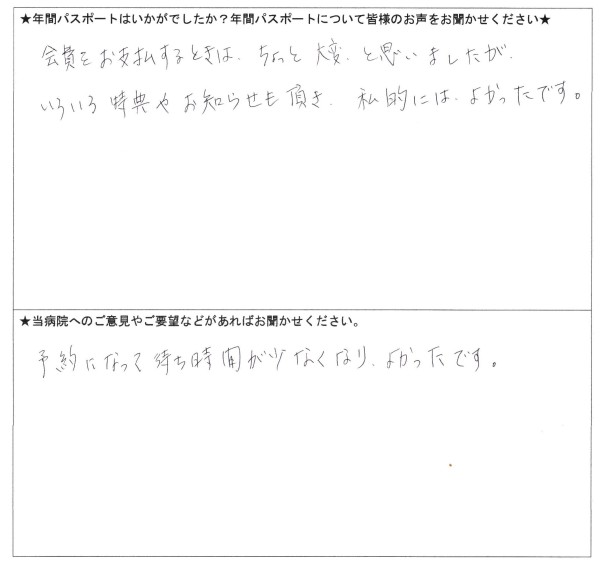 ★年間パスポートはいかがでしたか？年間パスポートについて皆様のお声をお聞かせください★
会費をお支払するときは、ちょっと大変、と思いましたが、
いろいろ特典やお知らせも頂き、私的には、よかったです。
★当病院へのご意見やご要望などがあればお聞かせください。
予約になって待ち時間が少なくなり、よかったです。